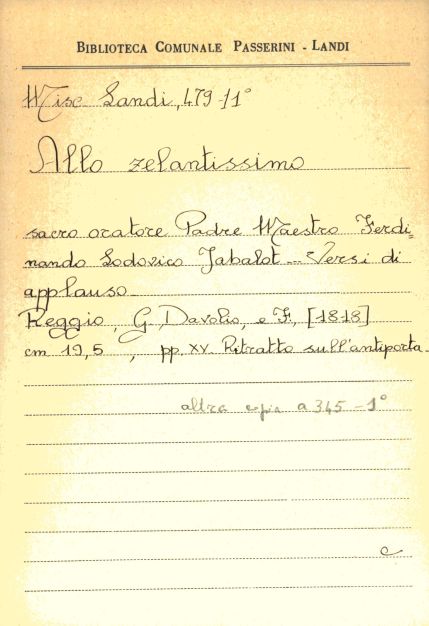 BIBLIOTECA COMUNALE PASSERINI - LANDI
Misc. Landi, 479-11°
Allo zelantissimo
sacro oratore Padre Maestro Ferdi=
nando Lodovico Jabalot... Versi di
applauso.
Reggio, G. Davolio, e F., [1818]
cm 19,5 , pp. XV. Ritratto sull'antiporta.
altra copia a 345 - 1°
c